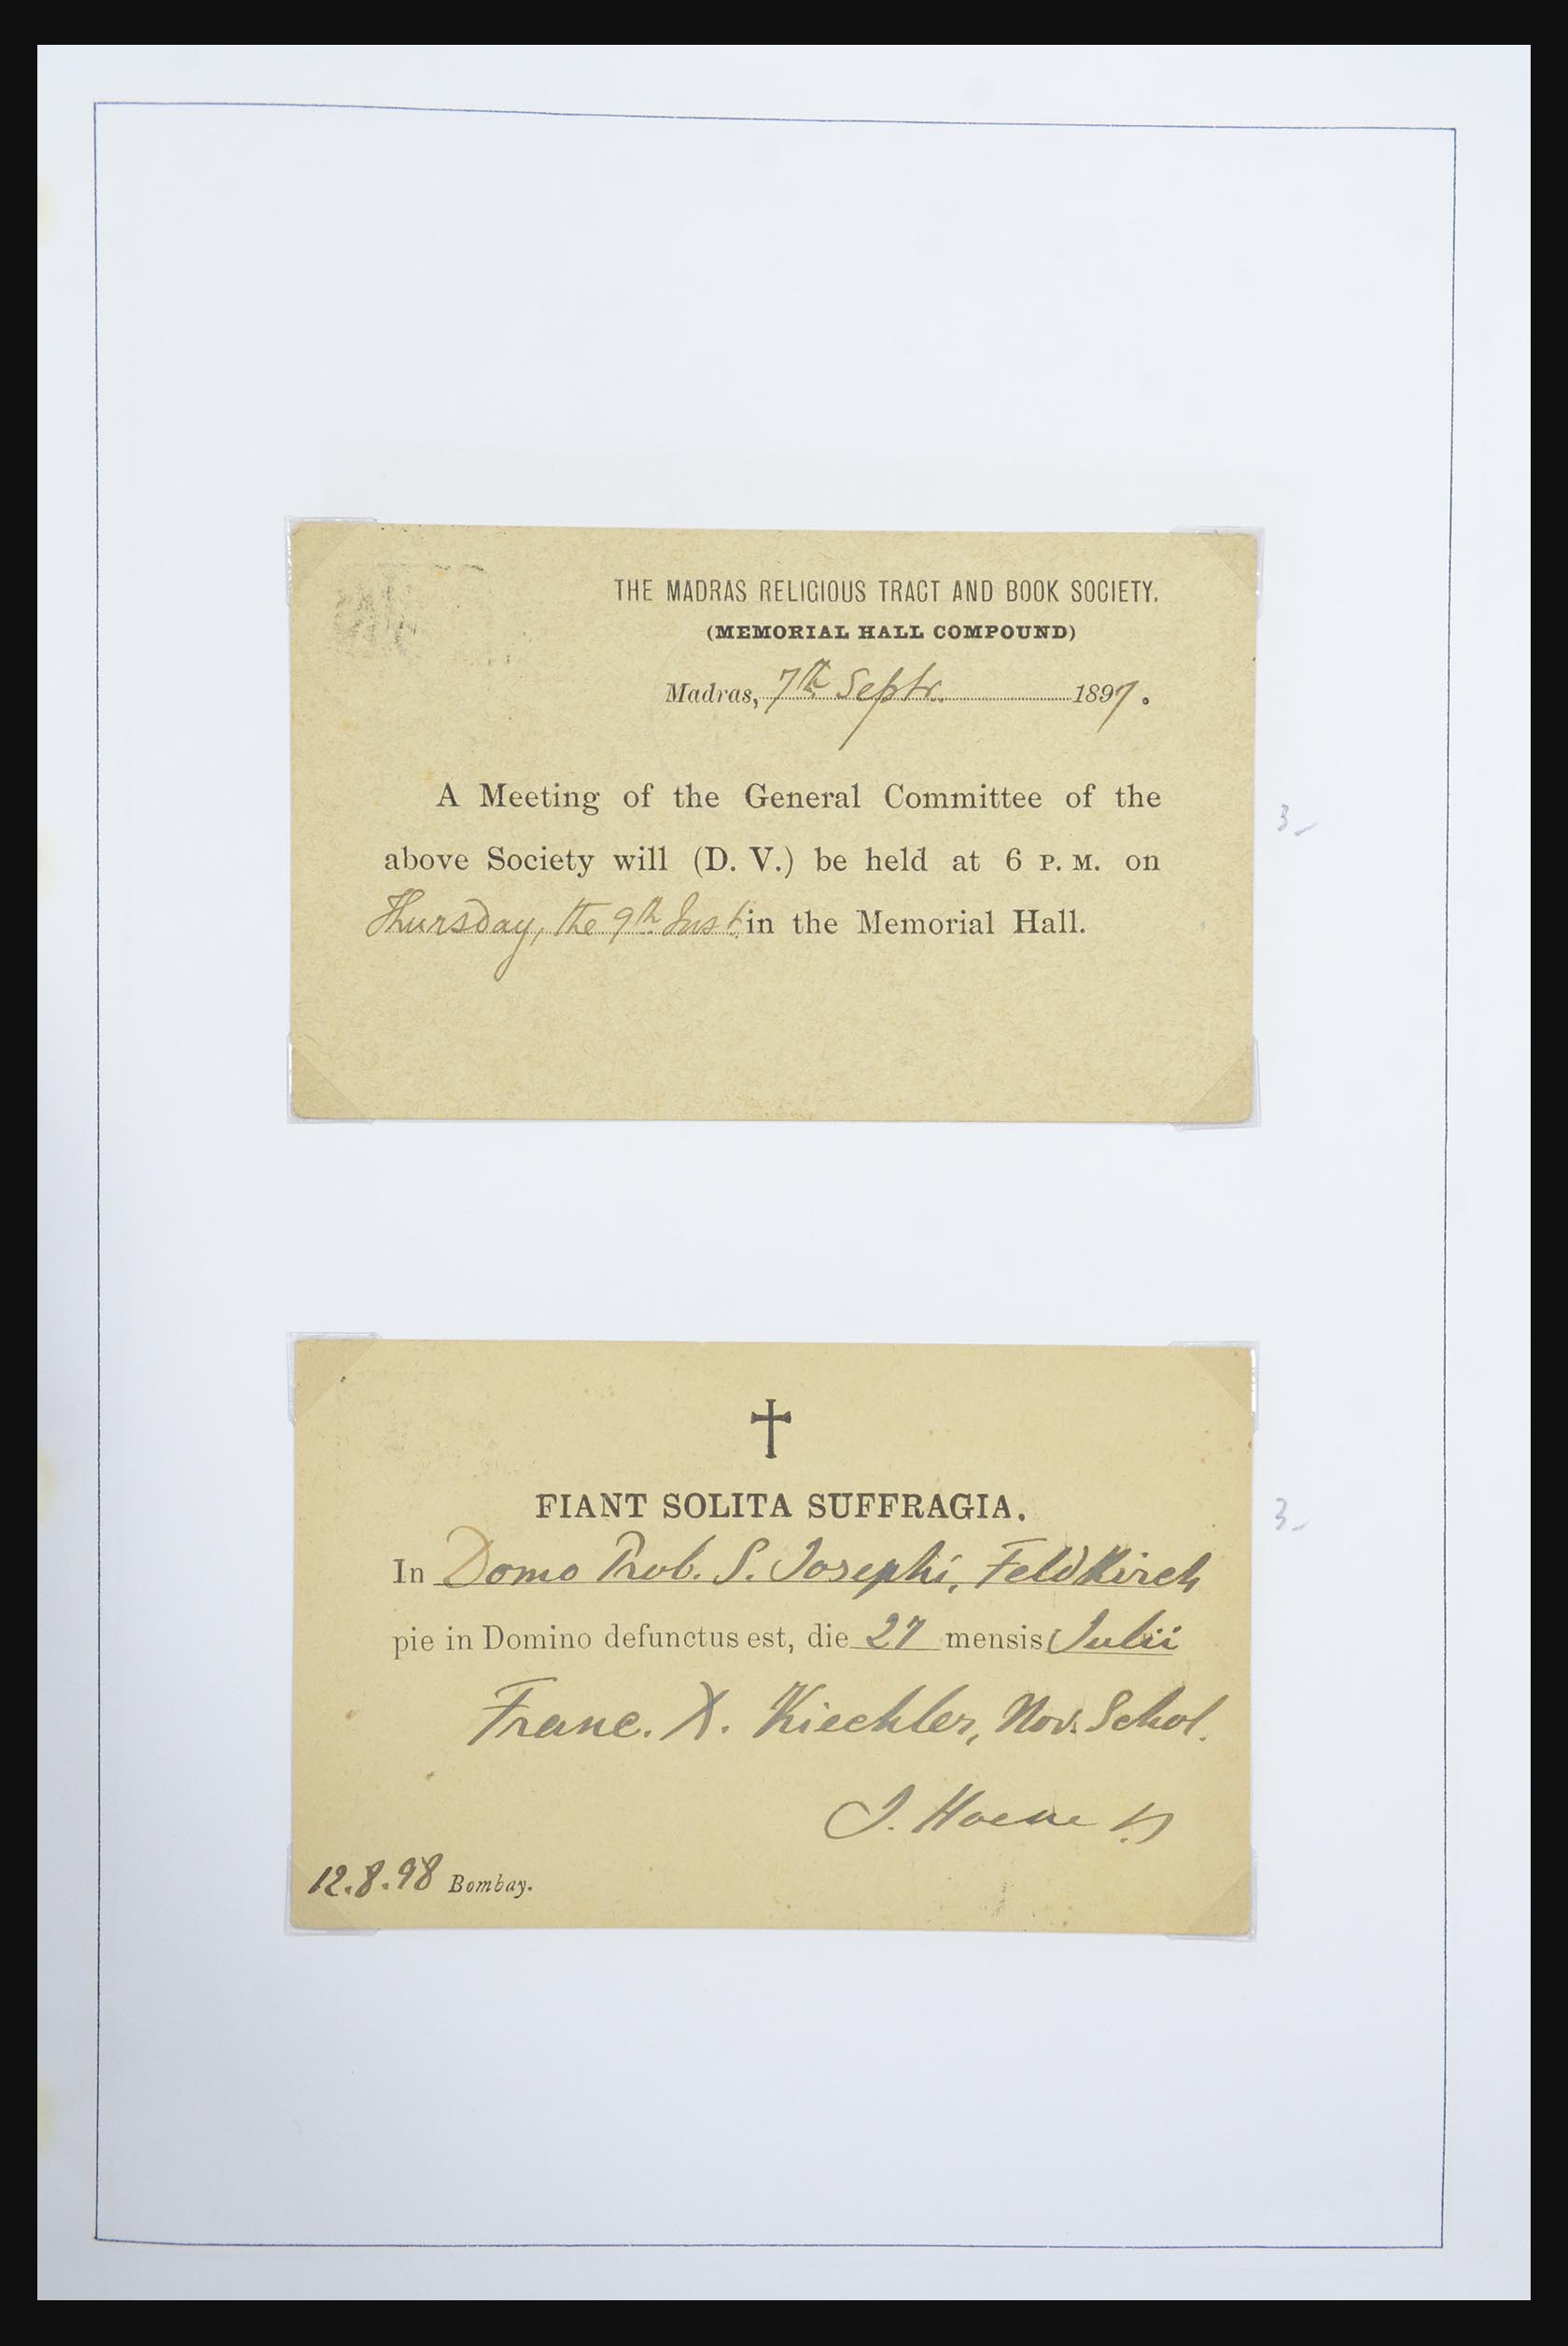 THE MADRAS RELIGIOUS TRACT AND BOOK SOCIETY.
(MEMORIAL HALL COMPOUND)
Madras, 7th Septr. 1897.
A Meeting of the General Committee of the
above Society will (D. V.) be held at 6 P. M. on
Thursday, the 9th Inst. in the Memorial Hall.
3-
FIANT SOLITA SUFFRAGIA.
3-
In Domo Prob. S. Josephi, Feldkirch
pie in Domino defunctus est, die 27 mensis Julii
Franc. X. Kiechler, Nov. Schol.
J. Hoene
12.8.98 Bombay.